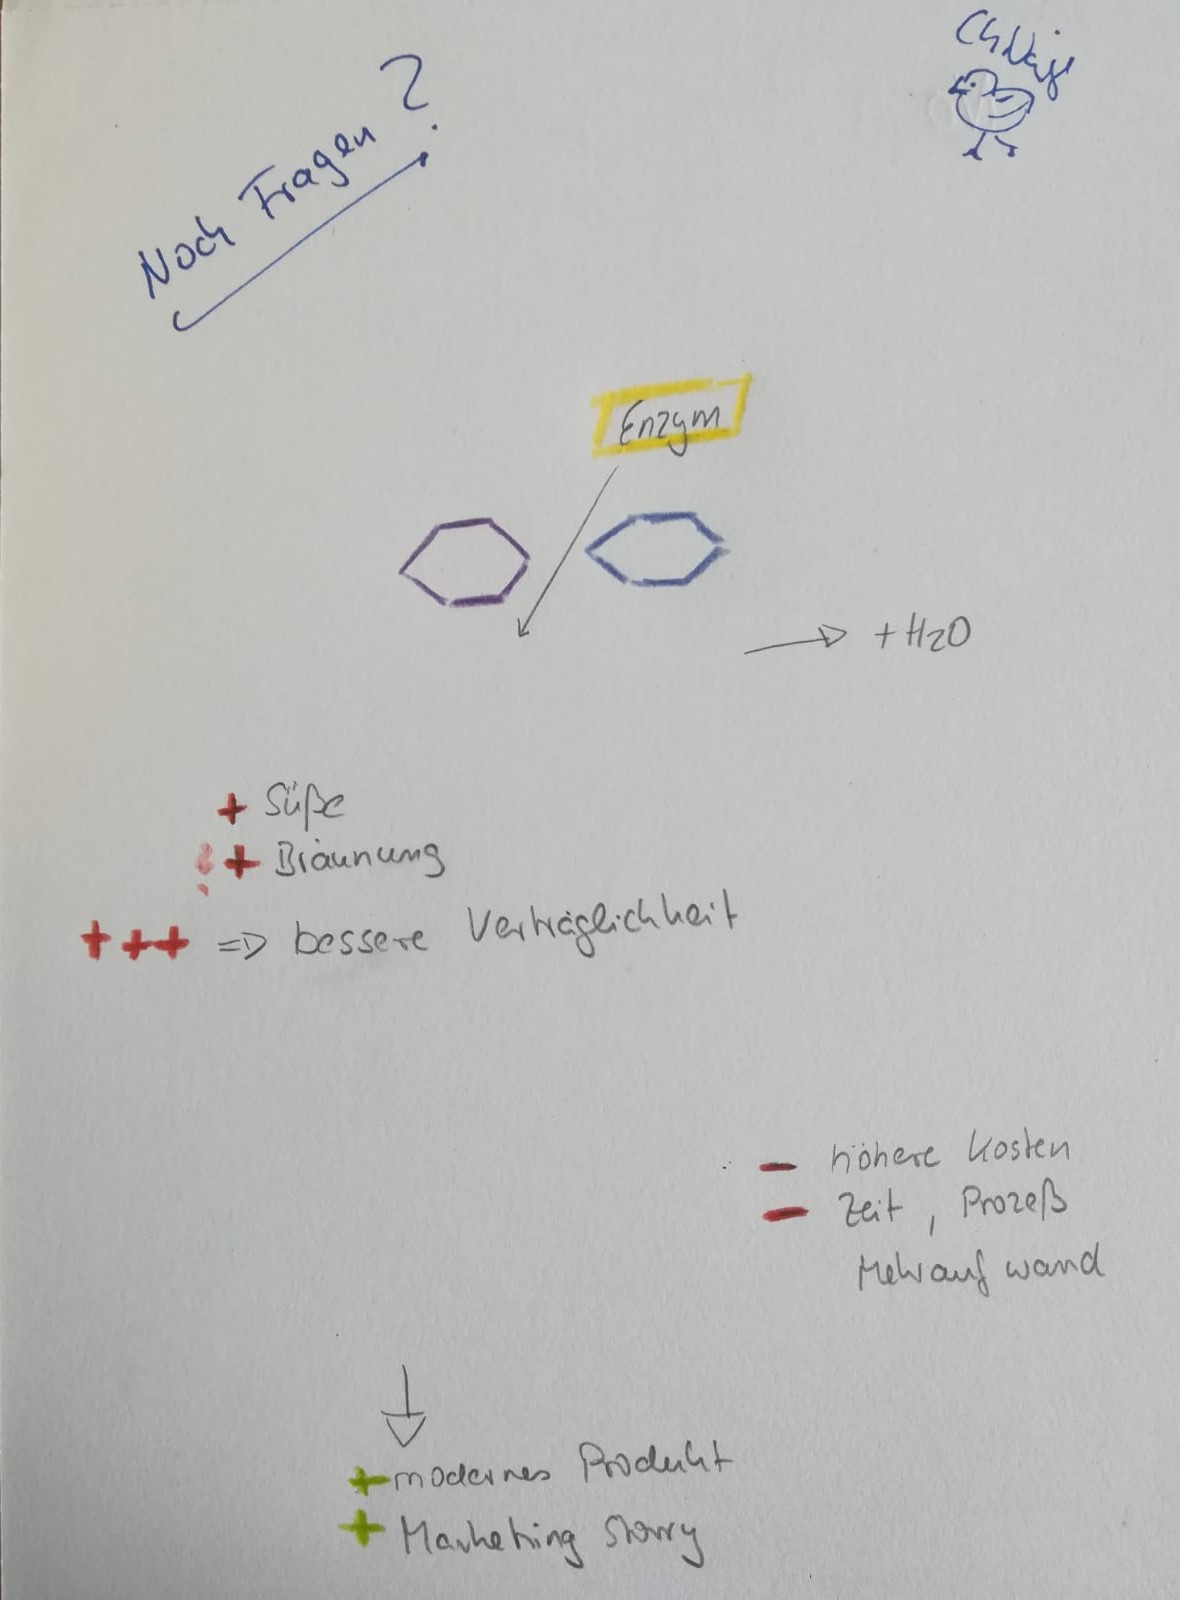 Noch Fragen?
Enzym
+ H2O
+ Süße
? + Bräunung
+++ => bessere Verträglichkeit
- höhere Kosten
- Zeit, Prozeß
Mehraufwand
+ modernes Produkt
+ Marketing story